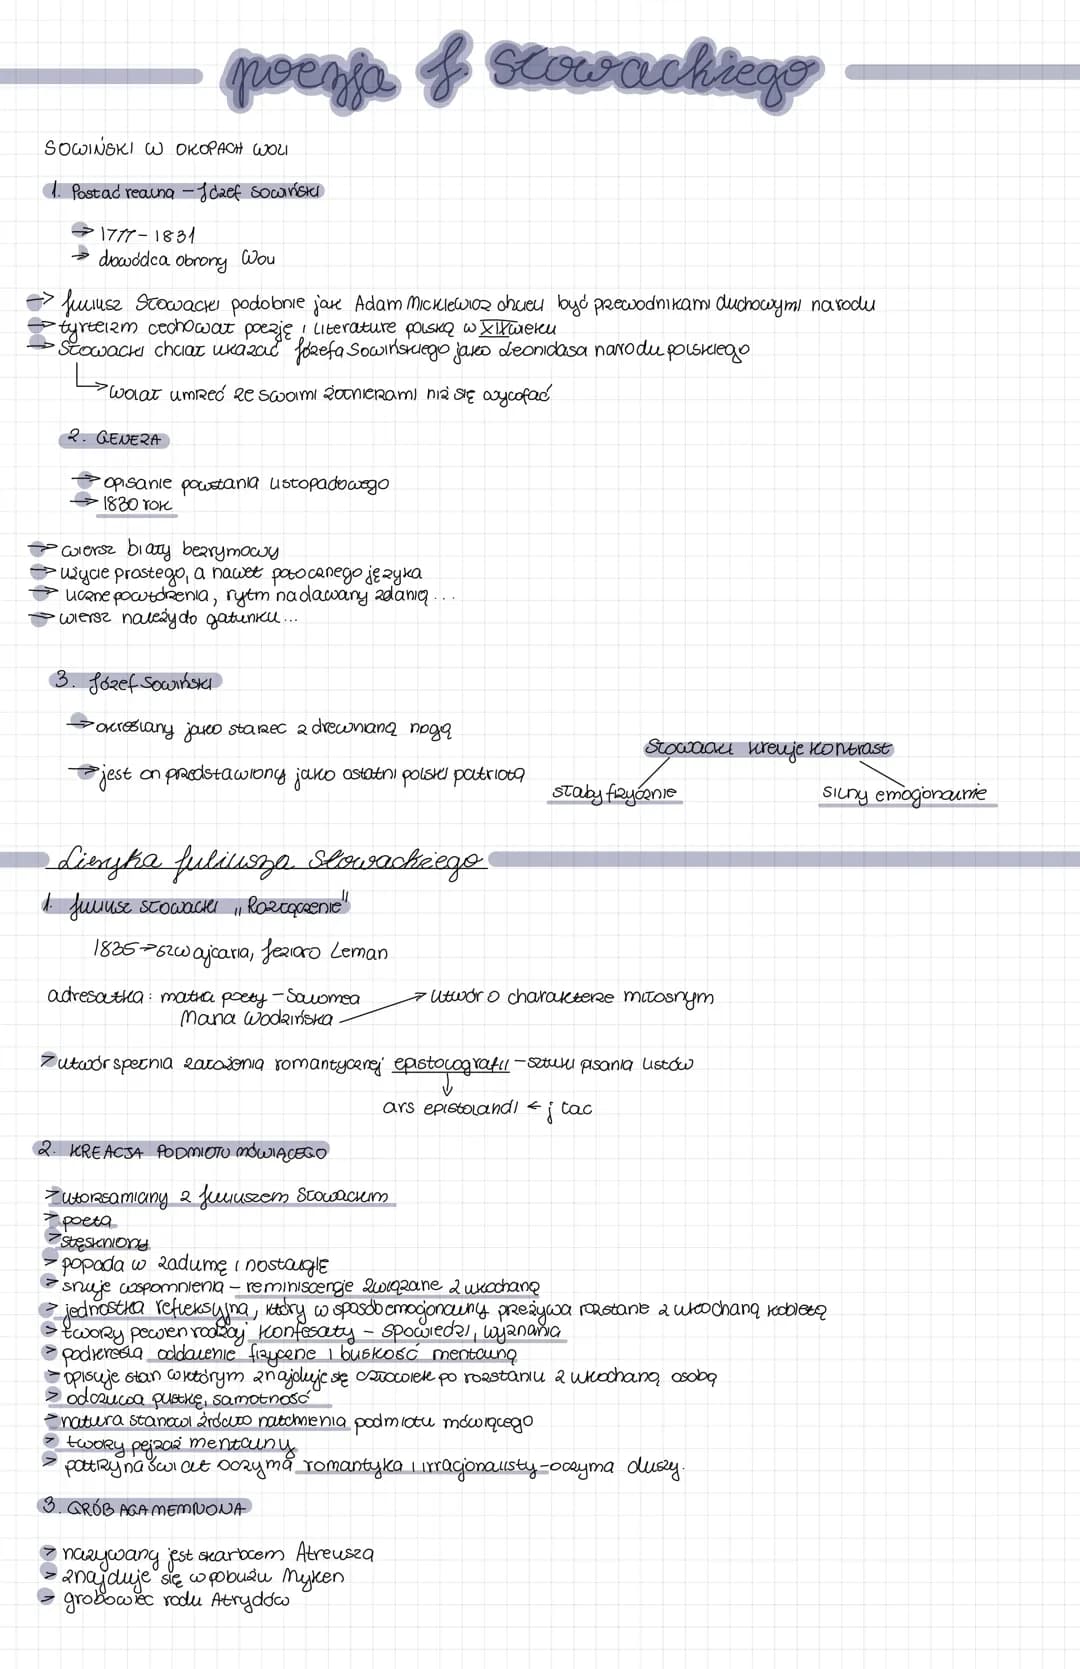 poezja J. Słowackiego
SOWIŃSKI W OKOPACH WOLI
1. Postać realna – Józef Sowiński
→ 1777 – 1831
→ dowódca obrony Woli
→ Juliusz Słowacki podobnie jak Adam Mickiewicz chcieli być przewodnikami duchowymi narodu
→ tyrteizm cechował poezję i literaturę polską w XIX wieku
→ Słowacki chciał ukazać Józefa Sowińskiego jako Leonidasa narodu polskiego
→ wolał umrzeć ze swoimi żołnierzami niż się wycofać
2. GENEZA
→ opisanie powstania listopadowego
→ 1830 rok
→ wiersz biały bezrymowy
→ użycie prostego, a nawet potocznego języka
→ liczne powtórzenia, rytm nadawany zdanią...
→ wiersz należy do gatunku...
3. Józef Sowiński
→ określany jako starzec z drewnianą nogą
→ jest on przedstawiony jako ostatni polski patriota
Słowacki kreuje kontrast
słaby fizycznie
silny emocjonalnie
Liryka Juliusza Słowackiego
1. Juliusz Słowacki „Rozłączenie"
1835 → Szwajcaria, Jezioro Leman
adresatka: matka poety – Salomea
Maria Wodzińska
→ utwór o charakterze miłosnym
> utwór spełnia założenia romantycznej epistolografii – sztuki pisania listów
ars epistolandi ← j łac
2. KREACJA PODMIOTU MÓWIĄCEGO
> utożsamiany z Juliuszem Słowackim
> poeta
> stęskniony
> popada w zadumę i nostalgię
> snuje wspomnienia – reminiscencje związane z ukochaną
> jednostka refleksyjna, który w sposób emocjonalny przeżywa rozstanie z ukochaną kobietą
> tworzy pewien rodzaj konfesaty – spowiedzi, wyznania
> podkreśla oddalenie fizyczne i bliskość mentalną
> opisuje stan w którym znajduje się człowiek po rozstaniu z ukochaną osobą
> odczuwa pustkę, samotność
> natura stanowi źródło natchnienia podmiotu mówiącego
> tworzy pejzaż mentalny
> patrzy na świat oczyma romantyka i irracjonalisty – oczyma duszy.
3. GRÓB AGAMEMNONA
> nazywany jest skarbcem Atreusza
> znajduje się w pobliżu Myken
> grobowiec rodu Atrydów